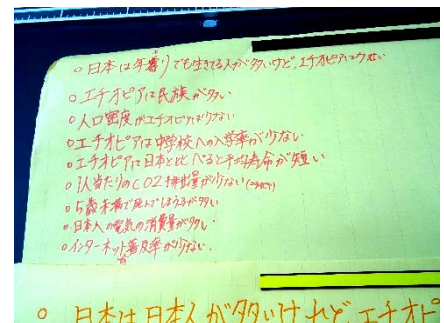 ○日本は年寄りでも生きてる人が多いけど、エチオピアは少ない
○エチオピアは民族が多い
○人口密度がエチオピアは少ない
○エチオピアは中学校への入学率が少ない
○エチオピアは日本と比べると平均寿命が短い
○1人当たりのCO2排出量が少ない
○5歳未満で死んでしまう子が多い
○日本人の電気の消費量が多い
○インターネット普及率が少ない
○日本は日本人が多いけれどエチオピ